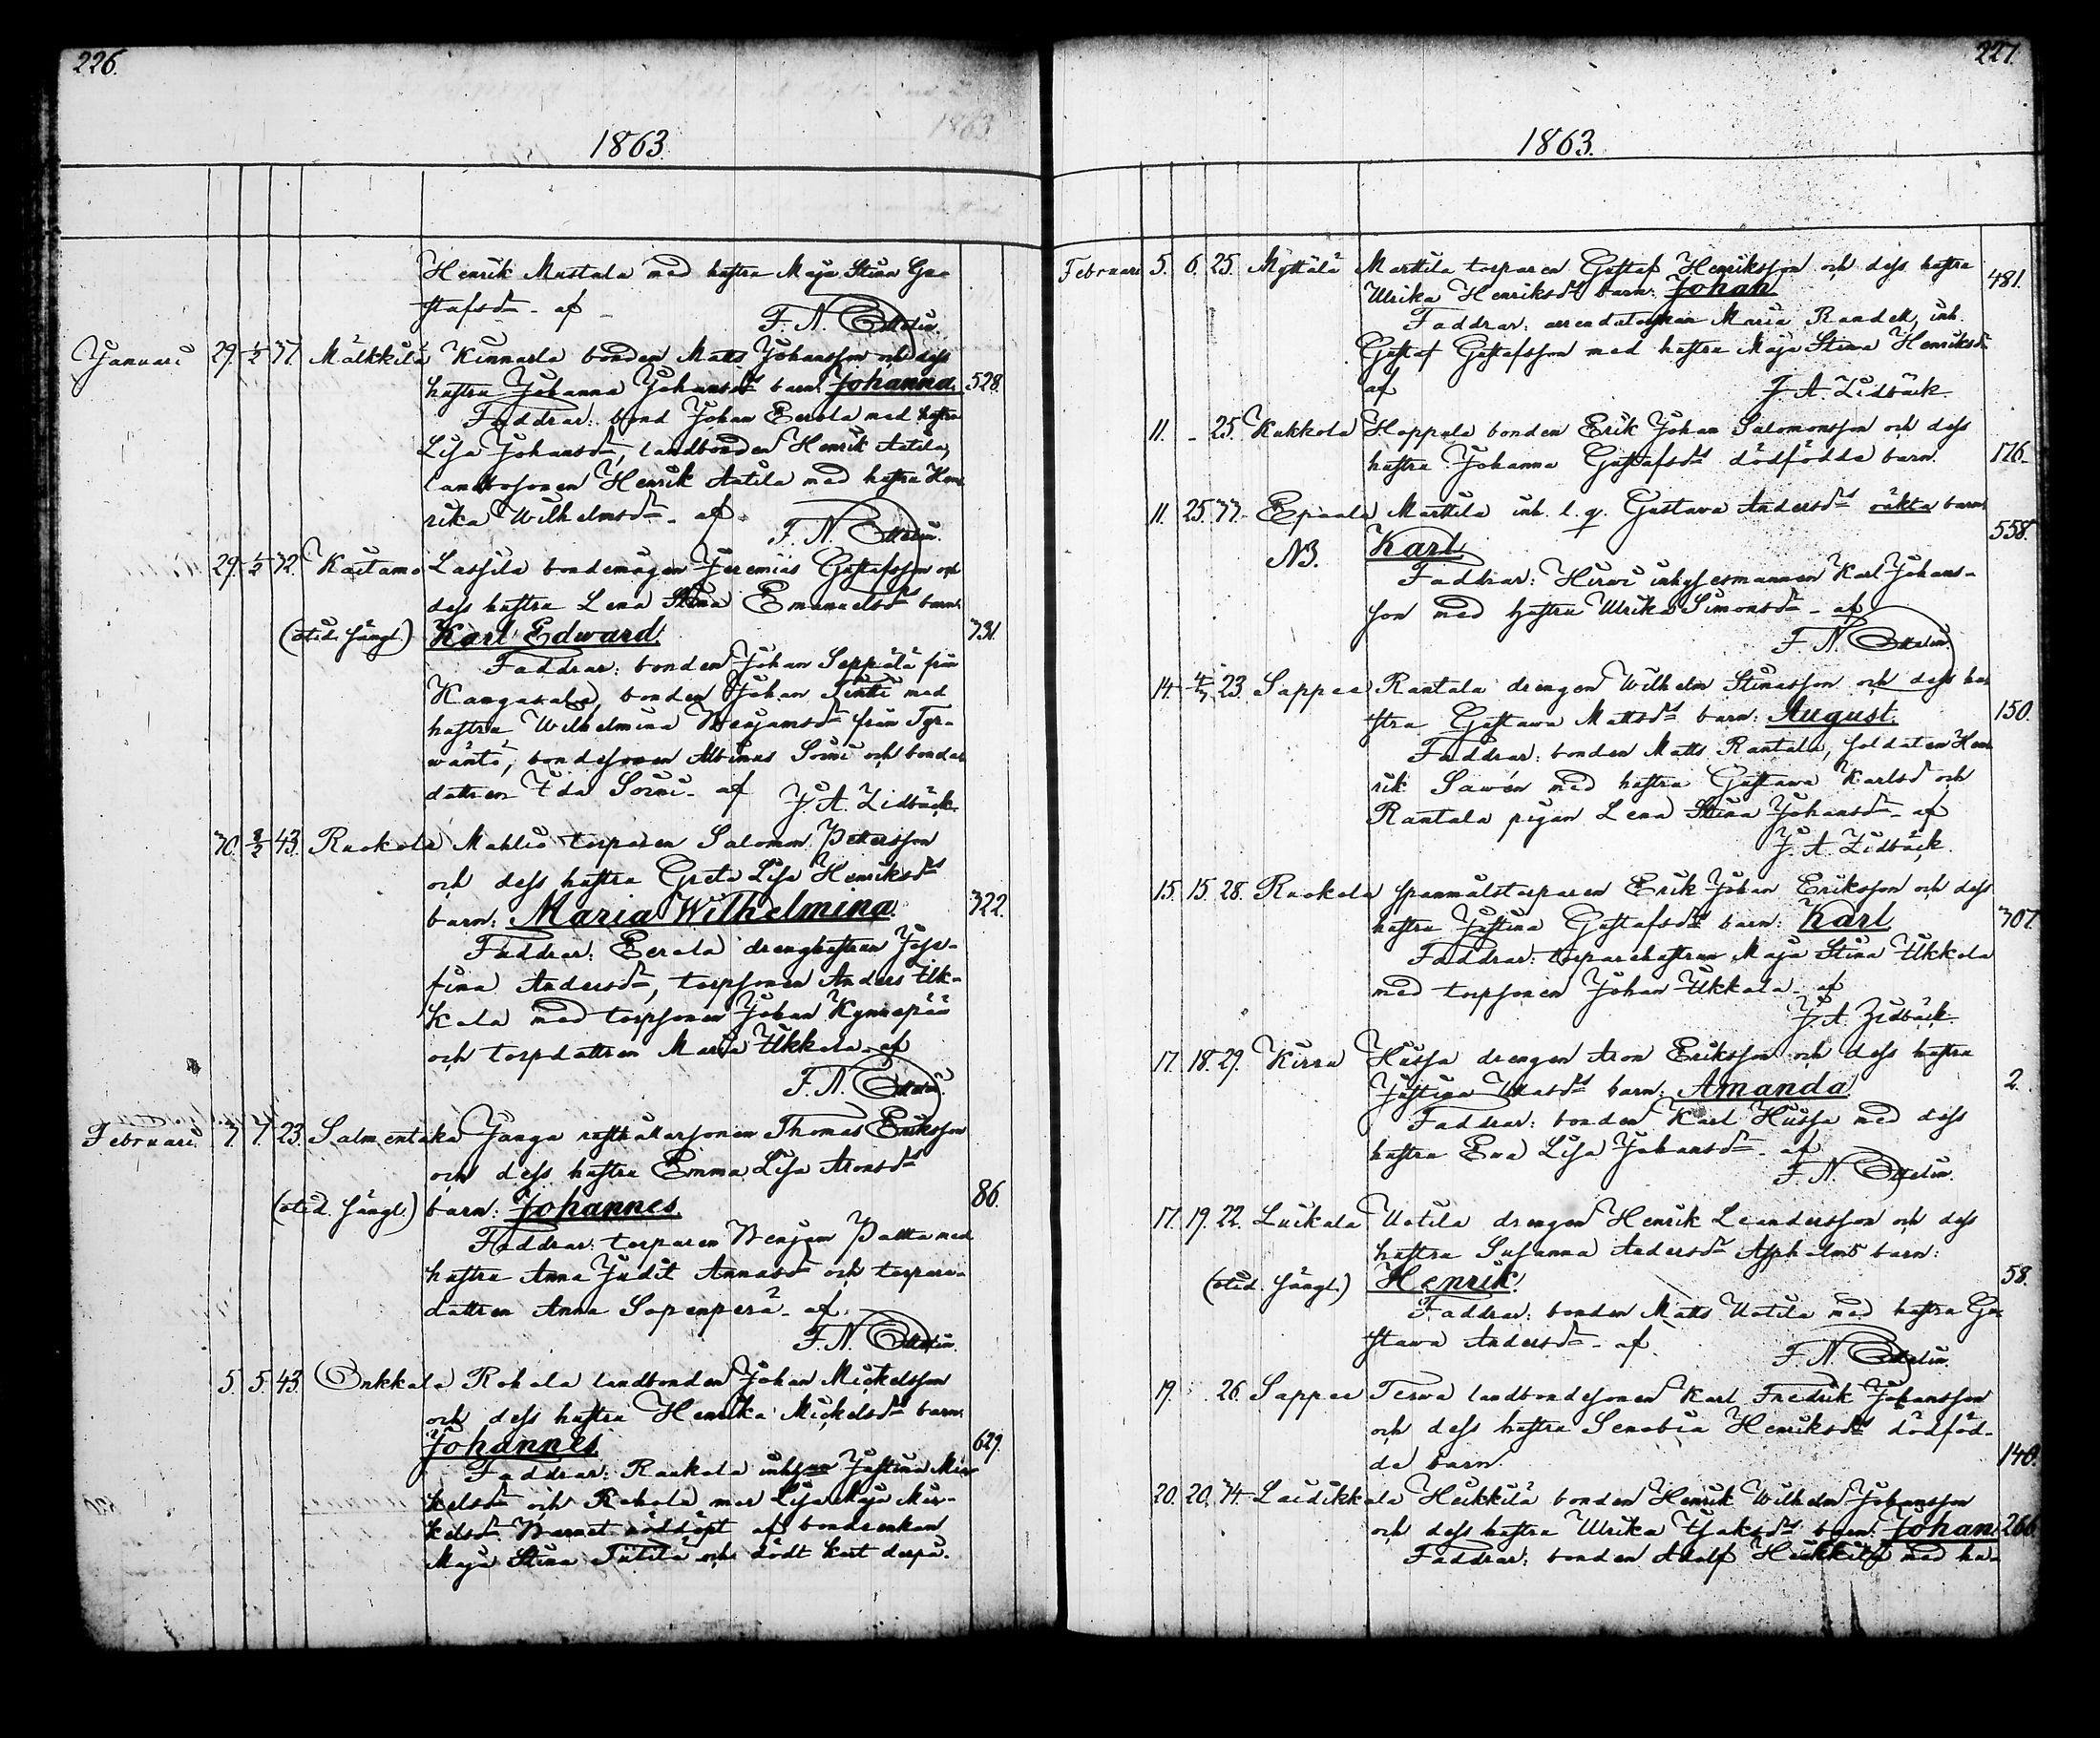 226.
1863
1863.
Henrik Mustala med hustru Maja Stina Gu-
stafsdr af
F. N. Ottelin.
Januari 29. 1/2 37. Mälkkilä Kinnarla bonden Matts Johansson och dess
hustru Johanna Johansdrs barn: Johanna. 528.
Faddrar: bond Johan Eerola med hustru
Lisa Johansdr, landbonden Henrik Aatila,
landbosonen Henrik Aatila med hustru Hen-
rika Wilhelmsdr af
F. N. Ottelin.
29. 1/2 32. Kaitamo Lassila bondemågen Jeremias Gustafsson och
dess hustru Lena Stina Emanuelsdrs barn:
(otid. hängl.) Karl Edward. 731.
Faddrar: bonden Johan Seppälä från
Kangasala, bonden Johan Tintti med
hustru Wilhelmina Benjamsdr från Tyr-
wäntö, bondesonen Albinus Soini och bonde
dottren Ida Soini. af J. A. Lidbäck.
30. 2/2 43. Ruokola Mahlio torparen Salomon Pettersson
och dess hustru Greta Lisa Henriksdrs
barn: Maria Wilhelmina. 322.
Faddrar: Eerola drenghustrun Jose-
fina Andersdr, torpsonen Anders Uk-
kola med torpsonen Johan Kynnepää
och torpdottren Maria Ukkola. af
F. N. Ottelin.
Februari. 1. 1. 23. Salmentaka Janga rusthållarsonen Thomas Eriksson
och dess hustru Emma Lisa Aronsdrs
(otid. hängl.) barn: Johannes. 86.
Faddrar: torparen Benjam Paltta med
hustru Anna Judit Annasdr och torpare-
dottren Anna Sopenperä. af
F. N. Ottelin.
5. 5. 43. Onkkala Rohola landbonden Johan Mickelsson
och dess hustru Henrika Mickelsdrs barn:
Johannes. 629.
Faddrar: Raukola Justina Mic-
kelsdr och Rohola mor Lisa Maja Mic-
kelsdr. Barnet nöddöpt af bondeenkan
Maja Stina Tiitilä och dödt kort derpå.
227.
1863.
Februari 5. 6. 25. Myttälä Marttila torparen Gustaf Henriksson och dess hustru
Ulrika Henriksdrs barn: Johan. 481.
Faddrar: Maria Randell, inh.
Gustaf Gustafsson med hustru Maja Stina Henriksdr.
af
J. A. Lidbäck.
11. - 25. Kukkola Hoppula bonden Erik Johan Salomonsson och dess
hustru Johanna Gustafsdrs dödfödda barn. 176.
11. 25. 37. Epaala Marttila inh. l. q. Gustava Andersdrs oäkta barn
NB. Karl. 558.
Faddrar: Hirwi inhysesmannen Karl Johans-
son med hustru Ulrika Simonsdr af
F. N. Ottelin.
14. 4/3 23. Sappee Rantala drengen Wilhelm Stinasson och dess hu-
stru Gustava Mattsdrs barn: August. 150.
Faddrar: bonden Matts Rantala, soldaten Hen-
rik Sawén med hustru Gustava Karlsdr och
Rantala pigan Lena Stina Johansdr af
J. A. Lidbäck.
15. 15. 28. Ruokola spanmålstorparen Erik Johan Eriksson och dess
hustru Justina Gustafsdrs barn: Karl. 307.
Faddrar: torparehustrun Maja Stina Ukkola
med torpsonen Johan Ukkola. af
J. A. Lidbäck.
17. 18. 29. Kirra Hussa drengen Aron Eriksson och dess hustru
Justina barn: Amanda. 2.
Faddrar: bonden Karl Hussa med dess
hustru Eva Lisa Johansdr. af
F. N. Ottelin.
17. 19. 22. Luikala Uotila drengen Henrik Leandersson och dess
hustru Susanna Andersdr Asphelms barn:
(otid. hängl.) Henrik. 58.
Faddrar: bonden Matts Uotila med hustru Gu-
stava Andersdr. af
F. N. Ottelin.
19. 26. Sappee Terwa landbondesonen Karl Fredrik Johansson
och dess hustru Senobia Henriksdrs dödföd-
da barn. 140.
20. 20. 34. Laidikkala Heikkilä bonden Henrik Wilhelm Johansson
och dess hustru Ulrika Isaksdrs barn: Johan. 266.
Faddrar: bonden Adolf Heikkilä med hu-